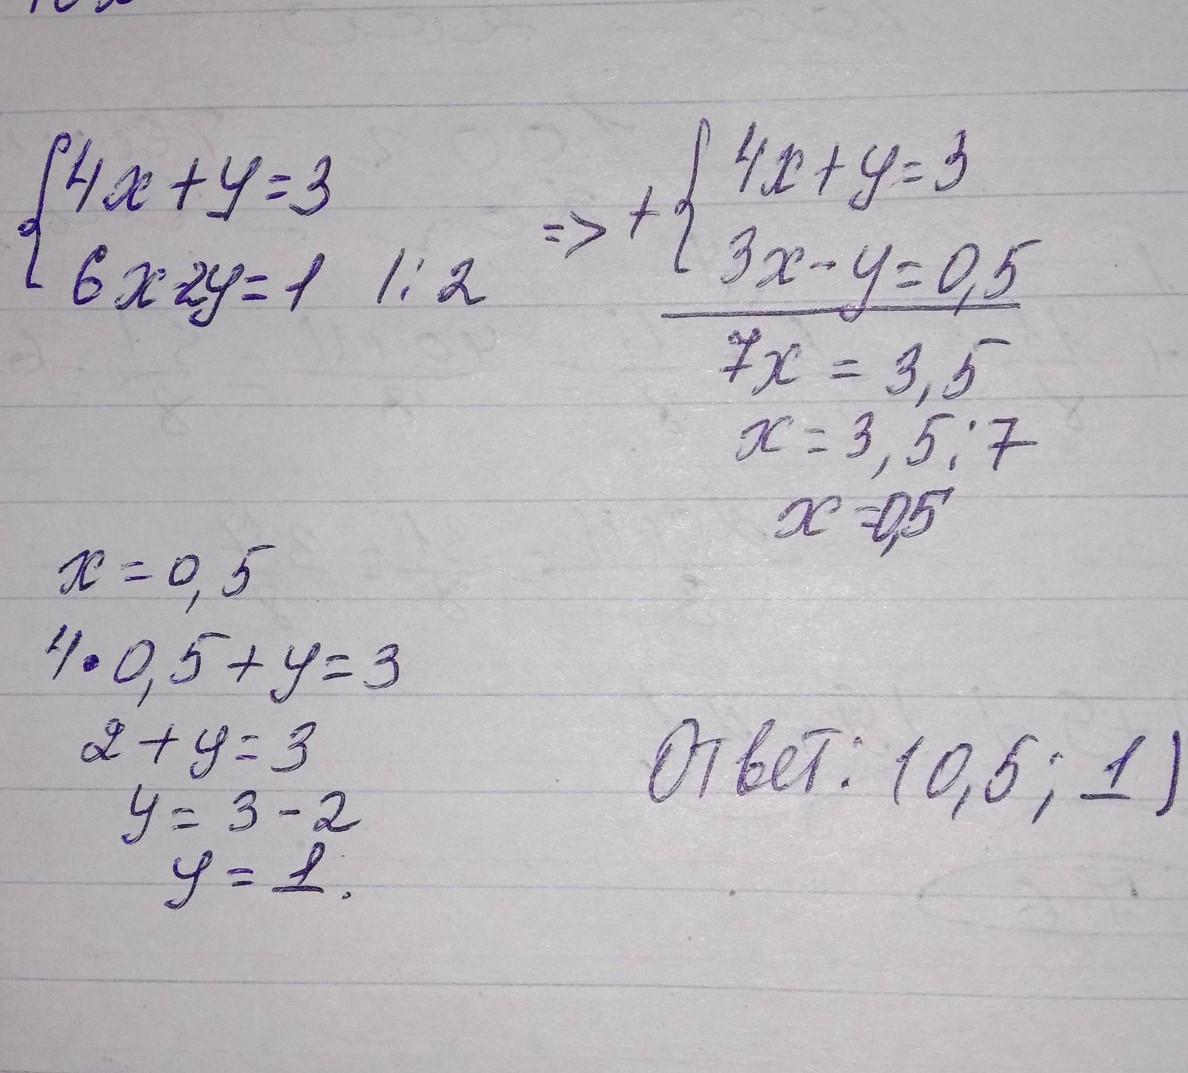 4x+y=3
6x-2y=1 |:2
=> + 4x+y=3
3x-y=0,5
7x = 3,5
x = 3,5:7
x =0,5
x = 0,5
4•0,5+y=3
2+y=3
y= 3-2
y = 1.
Ответ: (0,5; 1)